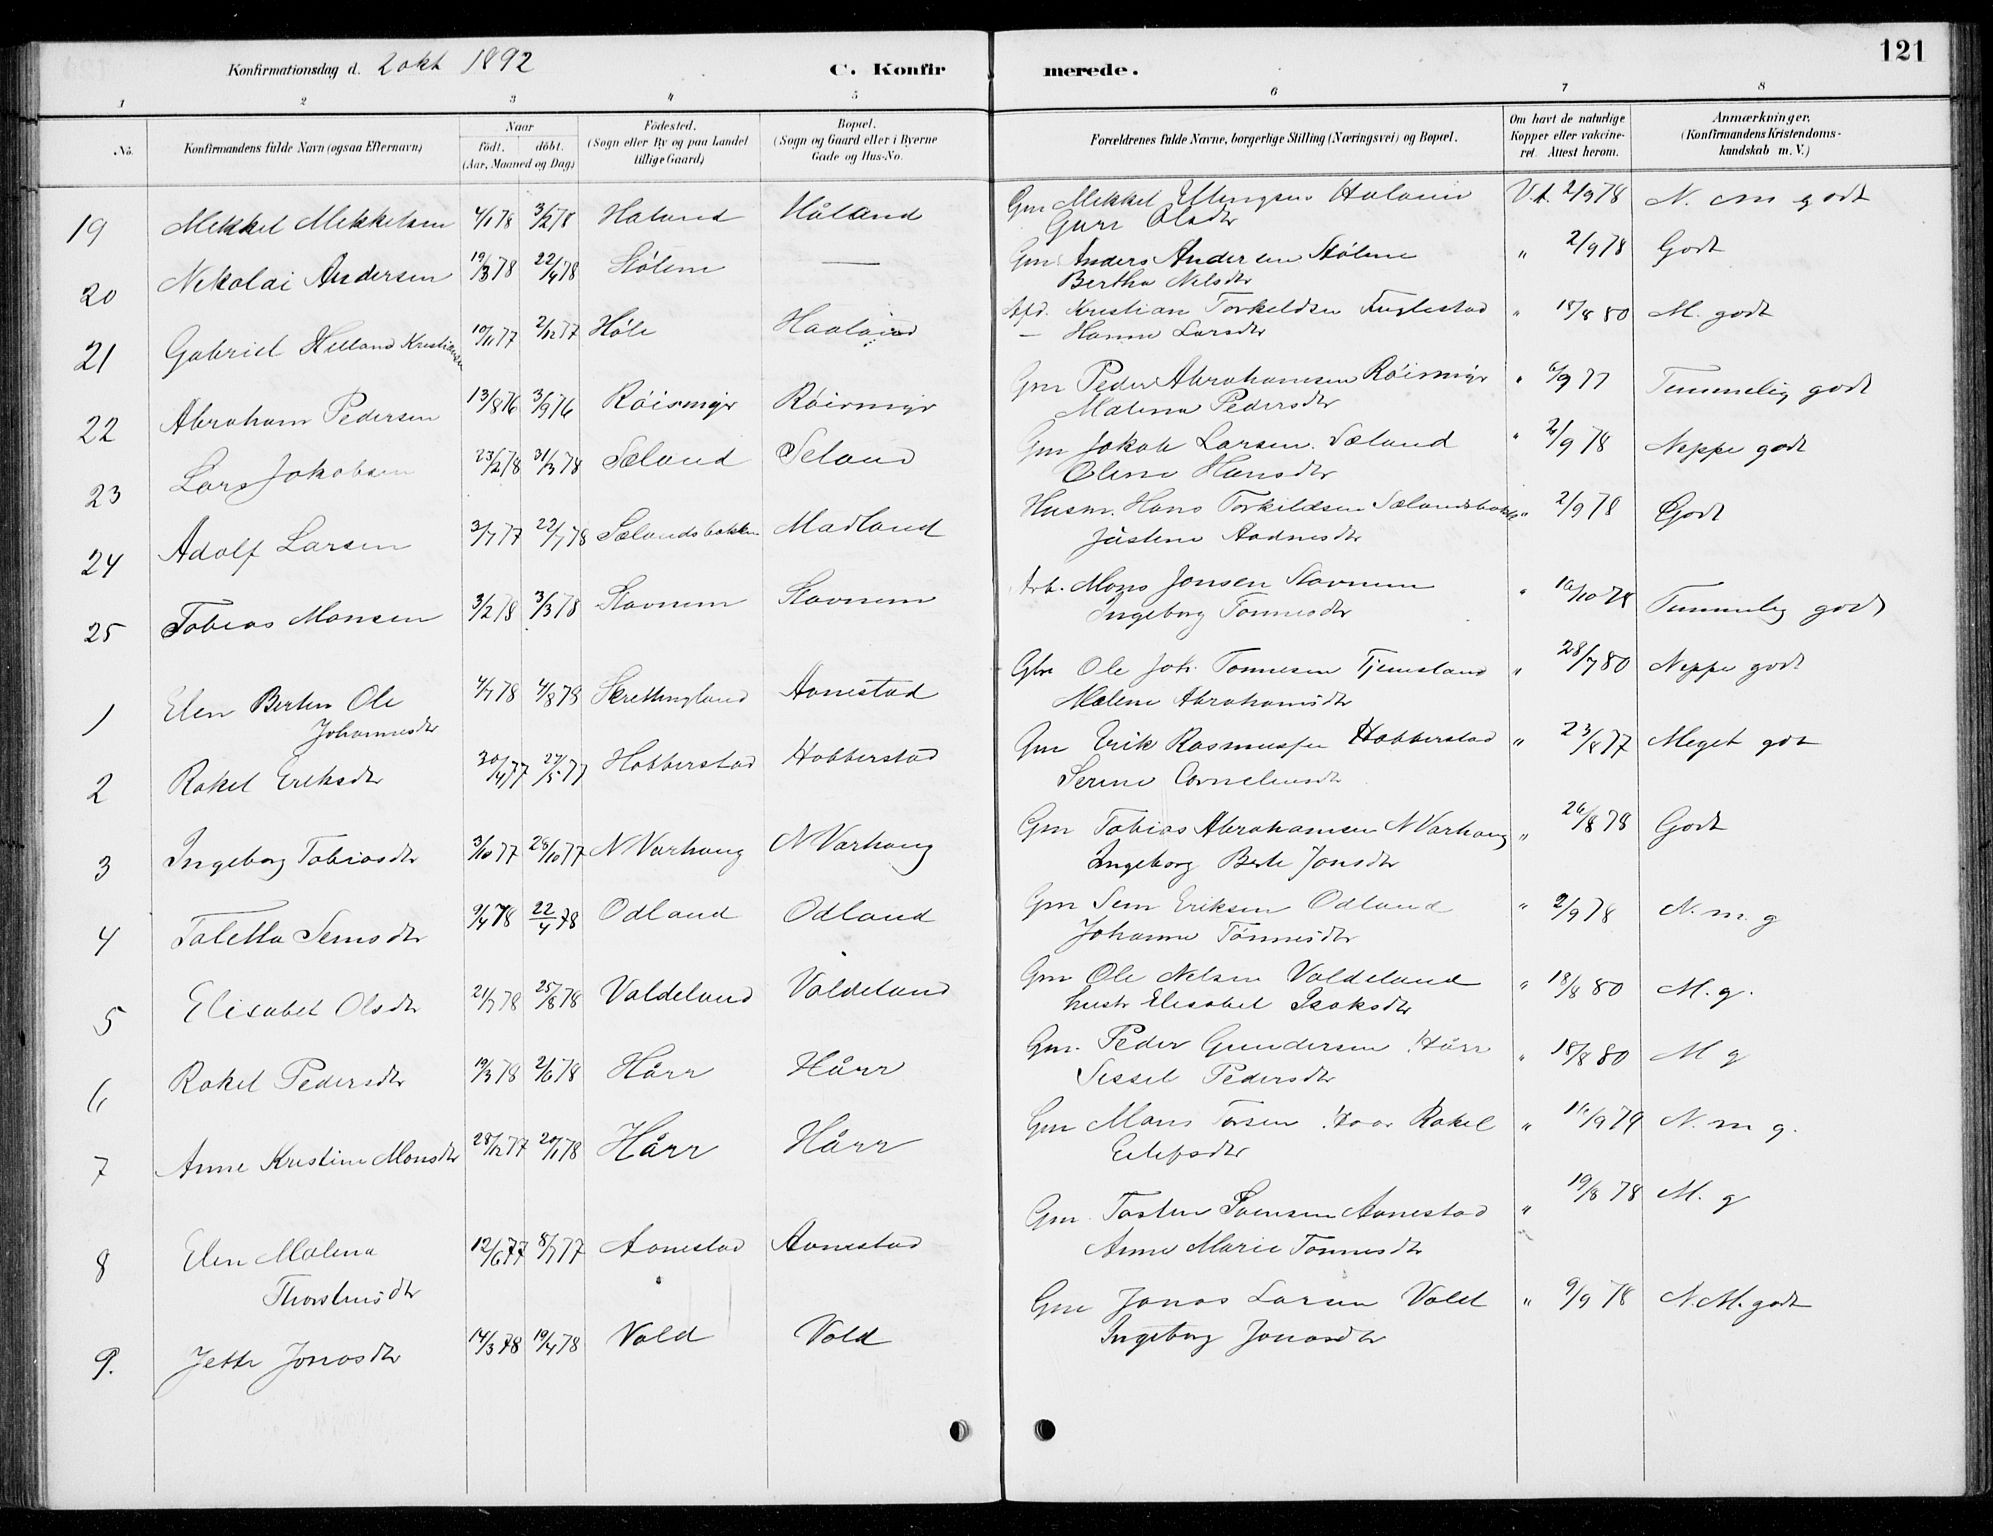 Konfirmationsdag d. 2 okt 1892 C. Konfirmerede. 121
1 2 3 4 5 6 7 8
No. Konfirmandens fulde Navn (ogsaa Efternavn) Naar födt. döbt. (Aar, Maaned og Dag) Födested. (Sogn eller By og paa Landet tillige Gaard) Bopæl. (Sogn og Gaard eller i Byerne Gade og Hus-No. Forældrenes fulde Navne, borgerlige Stilling (Næringsvei) og Bopæl. Om havt de naturlige Kopper eller vakcineret. Attest herom. Anmærkninger. (Konfirmandens Kristendomskundskab m. V.)
19 Mikkel Mikkelsen 4/1 78 3/2 78 Haland Håland Gm Mikkel Haland V.A. 2/9 78 N. m godt
Guri Olsdtr
20 Nikolai Andersen 19/3 78 22/4 78 Stölem — Gm Anders Andersen Stölene " 2/9 78 Godt
Bertha Nilsdtr
21 Gabriel Helland Kristiansen 10/11 77 2/12 77 Höle Haaland Afd. Kristian Torkeldsen Fuglestad " 18/8 80 M. godt
— Hanne Larsdtr
22 Abraham Pedersen 13/8 76 3/9 76 Röismyr Röismyr Gm Peder Abrahamsen Röismyr " 6/9 77 Temmelig godt
Malena Pedersdtr
23 Lars Jakobsen 23/2 78 31/3 78 Sæland Seland Gm Jakob Larsen Sæland " 2/9 78 Neppe godt
Olene Hansdtr
24 Adolf Larsen 3/7 77 22/7 78 Sælandsbakken Madland Husm. Hans Torkildsen Sælandsbak " 2/9 78 Godt
Justine Aadnesdtr
25 Tobias Monsen 3/2 78 3/3 78 Stavnem Stavnem Arb. Mons Jonsen Stavnem " 10/10 78 Temmelig godt
Ingeborg Tonnesdtr
1 Elen Bertin Ole 4/7 78 4/8 78 Skrettingland Aanestad Gbr Ole Joh. Tonnesen Tjemsland " 28/7 80 Neppe godt
Johannesdtr Malene Abrahamsdtr
2 Rakel Eriksdtr 30/4 77 27/5 77 Hobberstad Hobberstad Gm Erik Rasmussen Hobberstad " 23/8 77 Meget godt
Serine Corneliusdtr
3 Ingeborg Tobiasdtr 3/10 77 28/10 77 N Varhaug N Varhaug Gm Tobias Abrahamsen N Varhaug " 26/8 78 Godt
Ingeborg Berte Jonsdtr
4 Taletta Semsdtr 9/4 78 22/4 78 Odland Odland Gm Sem Eriksen Odland " 2/9 78 N. m. g
Johanne Tönnesdtr
5 Elisabet Olsdtr 21/7 78 25/8 78 Valdeland Valdeland Gm Ole Nilsen Valdeland " 18/8 80 M. g.
hustr Elisabet Isaksdtr
6 Rakel Pedersdtr 19/3 78 2/6 78 Hårr Hårr Gm. Peder Gundersen Hårr " 18/8 80 M g
Sissel Pedersdtr
7 Anne Kristine Monsdtr 28/12 77 20/1 78 Hårr Hårr Gm Mons Torsen Haar Rakel " 16/9 79 N. m g.
Eilefsdtr
8 Elen Malena 12/6 77 8/7 77 Aanestad Aanestad Gm Tosten Svensen Aanestad " 19/8 78 M. g
Thorstensdtr Anne Marie Tonnesdtr
9. Jette Jonasdtr 14/3 78 19/4 78 Vold Vold Gm Jonas Larsen Vold " 9/9 78 N. M. godt
Ingeborg Jonasdtr